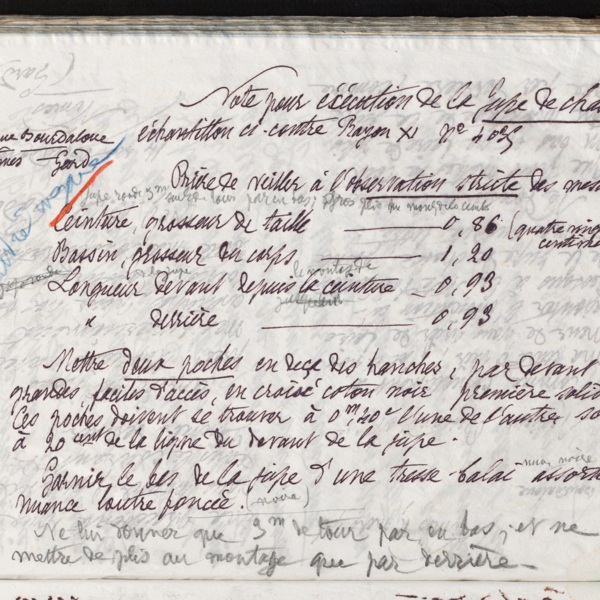 Note pour éxécution de la jupe de cha
échantillon ci-contre Rayon XI Nº 4035
rue Bourdaloue
Gard
Prière de veiller à l'observation stricte des mes
Ceinture, grosseur de taille 0,86 (quatre ving
centim
Bassin, grosseur du corps 1,20
Longueur devant depuis la ceinture 0,93
" derrière 0,93
Mettre deux poches en deçà des hanches, par devant
grandes, faciles d'accès, en croisé coton noir première soli
Ces poches doivent se trouver à 0m,40c l'une de l'autre, so
à 20 cent de la ligne du devant de la jupe.
Garnir le bas de la jupe d'une tresse-balai assort
nuance loutre foncée. (noire)
Ne lui donner que 3m de tour par en bas, et ne
mettre de plis au montage que par derrière.